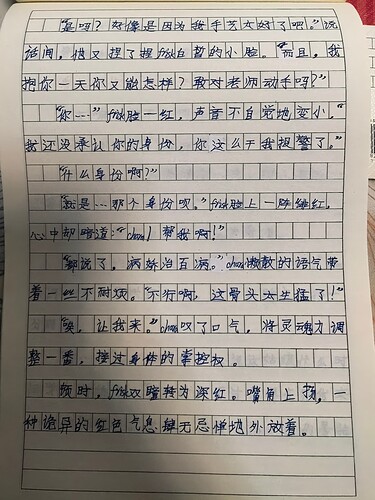 “是吗？好像是因为我手艺太好了吧。”说
话间，他又捏了捏frisk白皙的小脸。“而且，我
抱你一天你又能怎样？敢对老师动手吗？”
“你……”frisk脸一红，声音不自觉地变小，“
我还没承认你的身份，你这么干我报警了。”
“什么身份啊？”
“就是…那个身份呗。”frisk脸上一阵绯红，
心中却暗道：“chara！帮我啊！”
“都说了，病娇治百病。”chara慵散的语气带
着一丝不耐烦。“不行啊，这骨头太生猛了！”
“唉，让我来。”chara叹了口气，将灵魂力调
整一番，接过身体的掌控权。
顿时，frisk双瞳转为深红。嘴角上扬，一
种诡异的红色气息肆无忌惮地外放着。